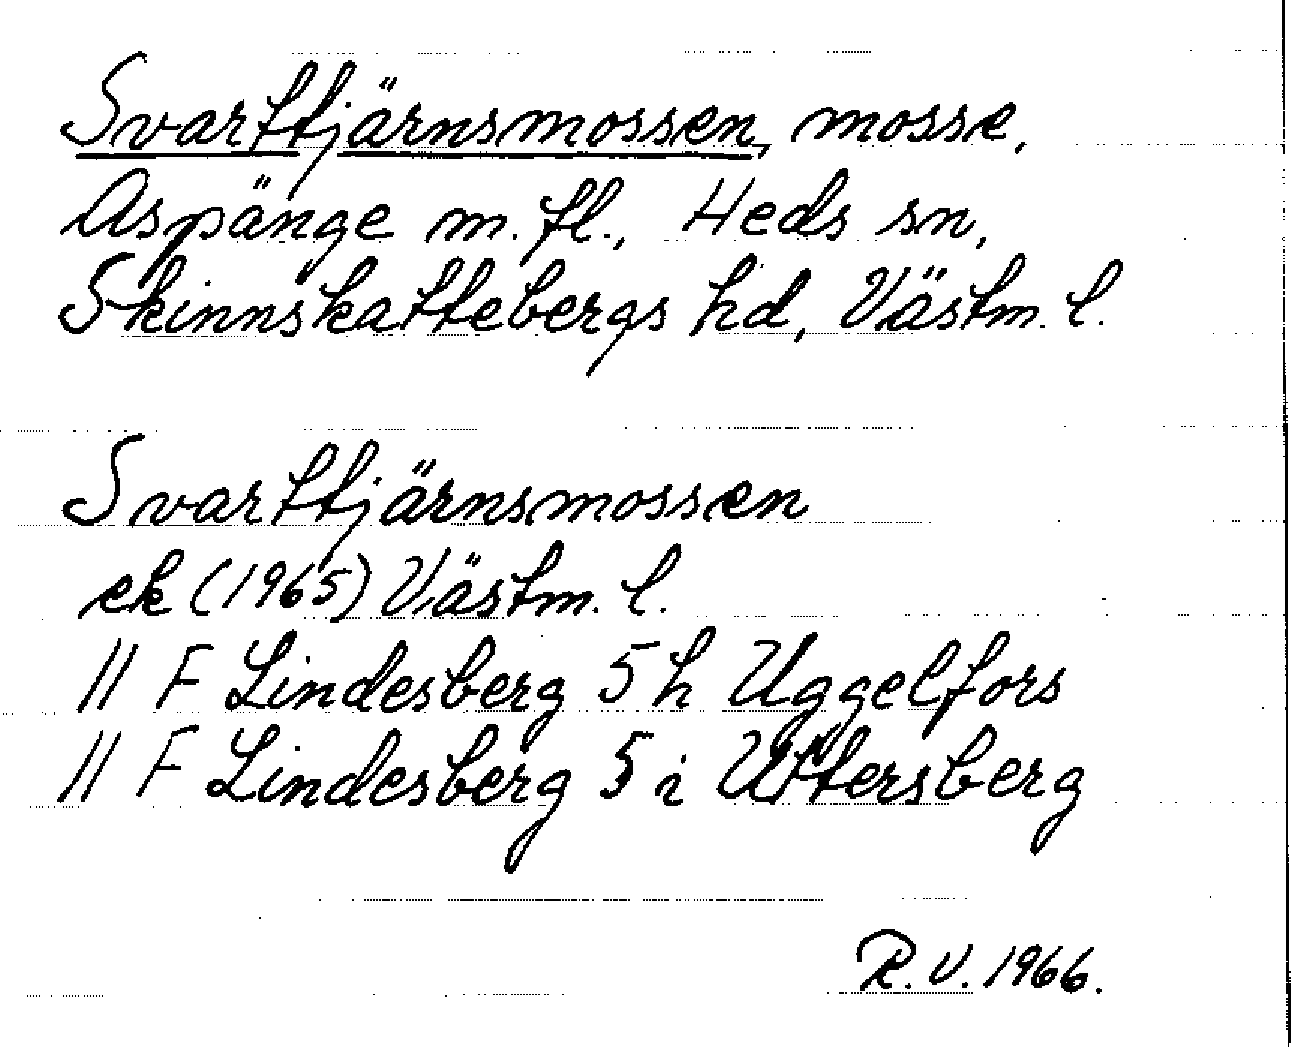 Svarttjärnsmossen, mosse,
Aspänge m. fl., Heds sn,
Skinnskattebergs hd, Västm. l.
Svarttjärnsmossen
ek (1965) Västm. l.
11 F Lindesberg 5 h Uggelfors
11 F Lindesberg 5 i Uttersberg
R. V. 1966.